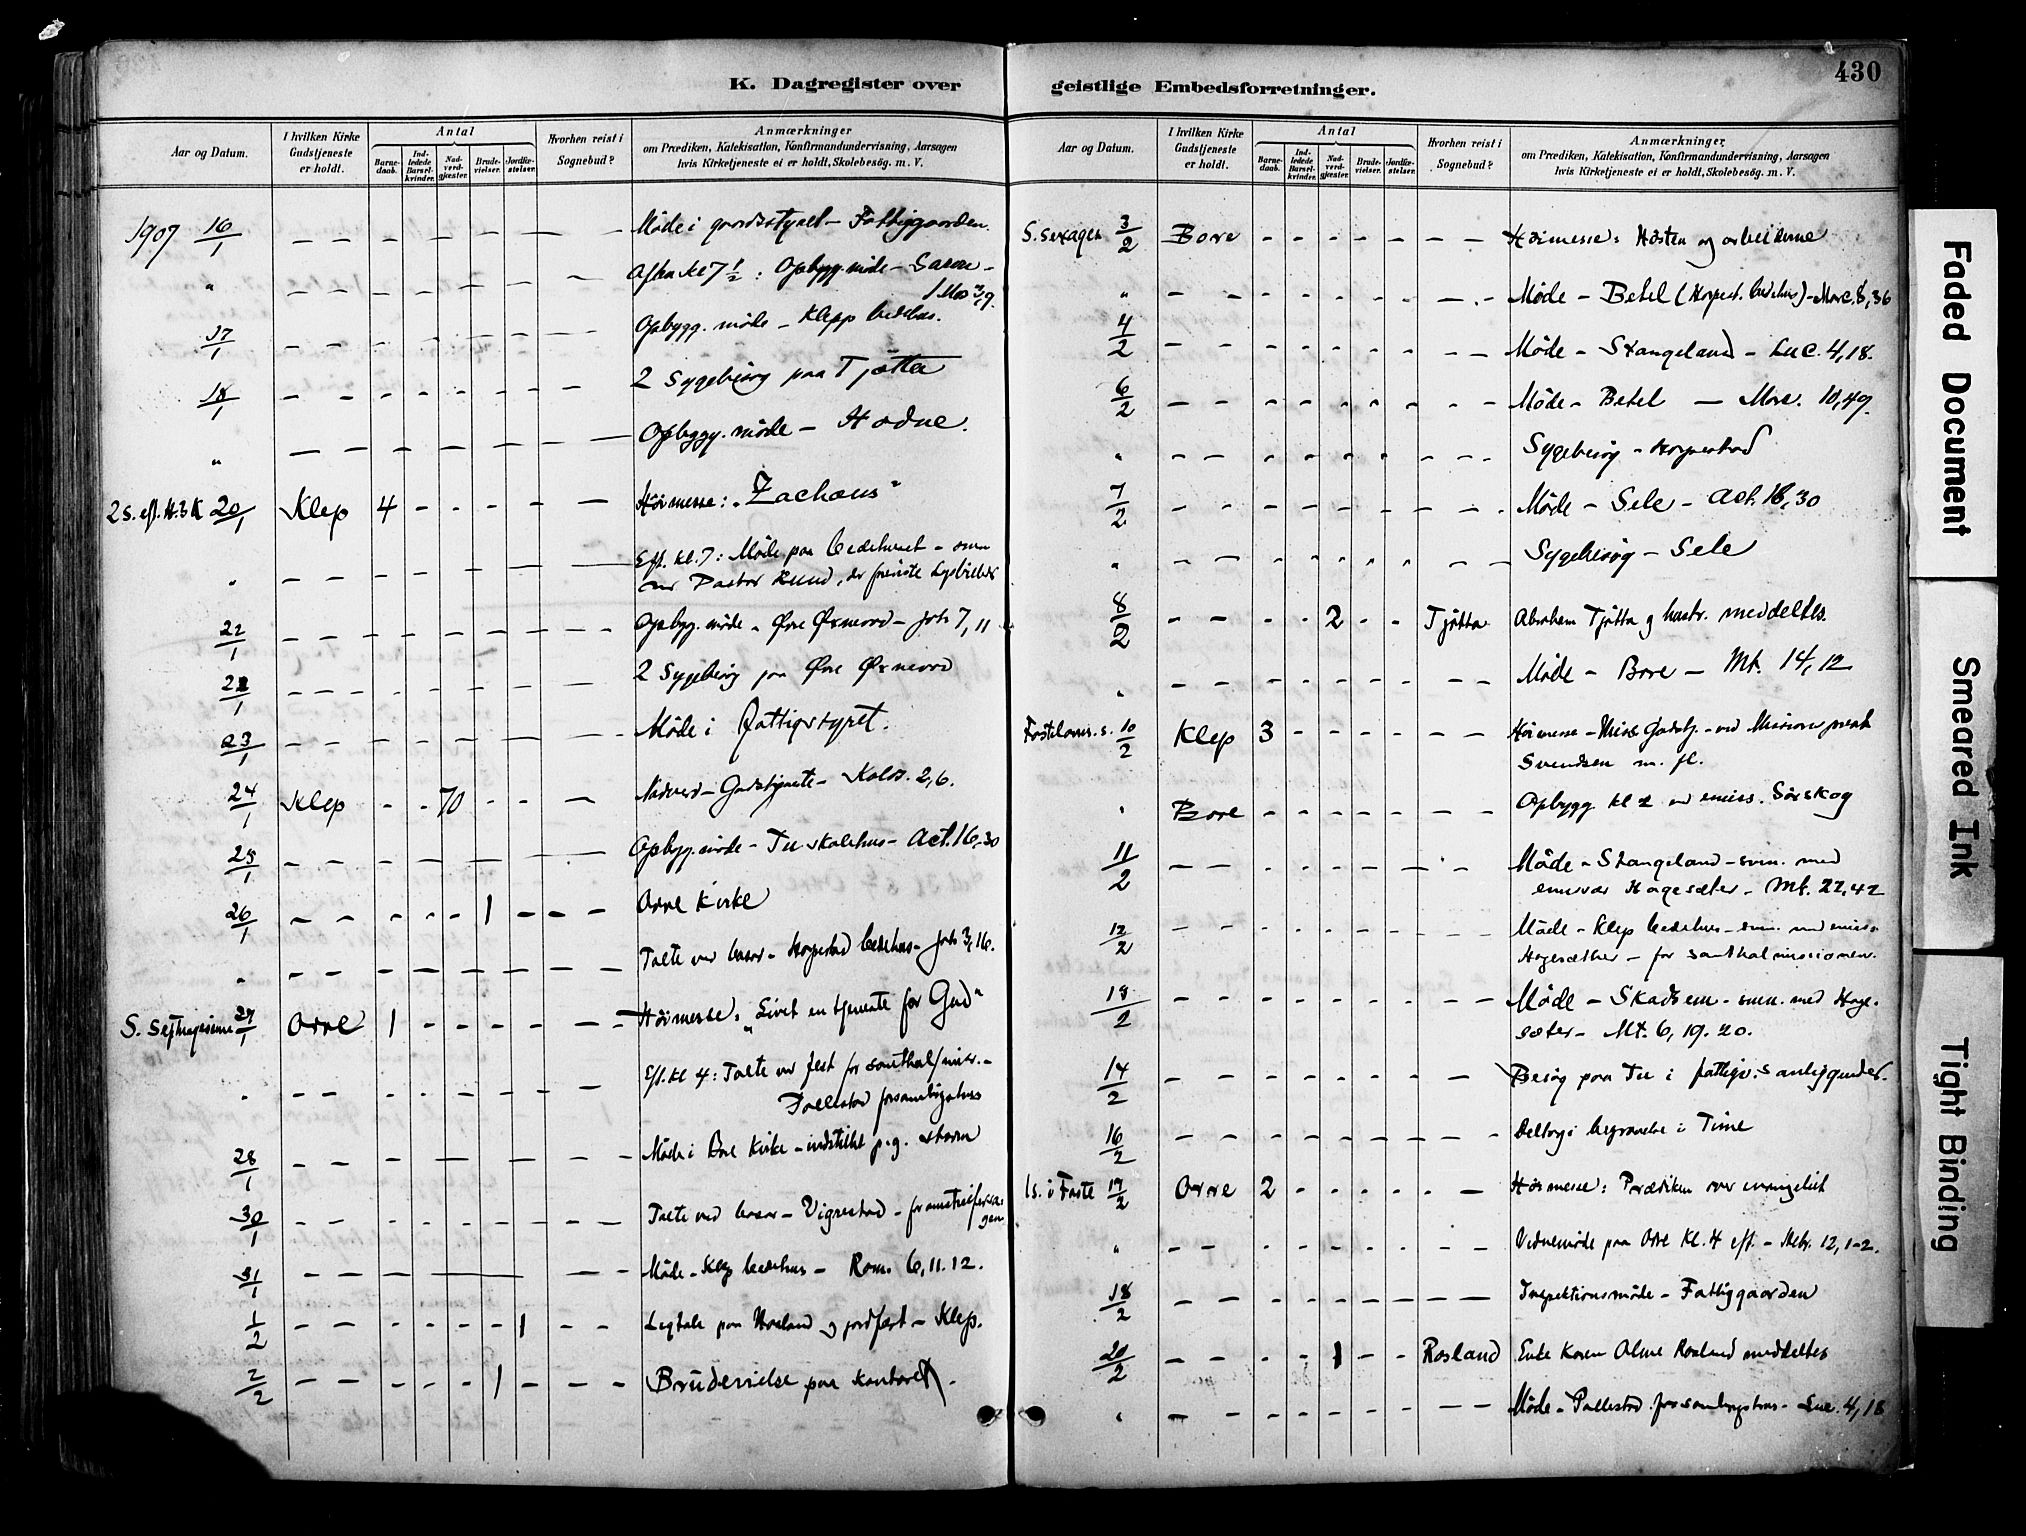 430
K. Dagregister over geistlige Embedsforretninger.
Aar og Datum.
I hvilken Kirke Gudstjeneste er holdt.
Antal
Barne-daab.
Ind-ledede Barsel-kvinder.
Nad-verd-gjæster.
Brude-vielser.
Jordfæ-stelser.
Hvorhen reist i Sognebud?
Anmærkninger
om Prædiken, Katekisation, Konfirmandundervisning, Aarsagen
hvis Kirketjeneste ei er holdt, Skolebesög. m. V.
1907 16/1 – – – – – – – – – Møde i – Fattiggaarden.
" – – – – – – – – Aften kl 7 1/2 : Opbygg. møde – Saron –
1 Mos 3, 9.
17/1 – – – – – – – – – Opbygg. møde – Klepp bedehus.
18/1 – – – – – – – – – 2 Sygebesøg paa Tjøtta
" – – – – – – – – – Opbygg. møde – Hodne.
2 s. eft. H. 3 K 20/1 Klep 4 – – – – – – Høimesse: „Zachæus"
" – – – – – – – – – Eft. kl. 7: Møde paa bedehuset – sam
Pastor Lund, der foreviste Lysbilleder
22/1 – – – – – – – – – Opbyg. møde – Øvre Øxnevad – Joh 7, 11
22/1 – – – – – – – – – 2 Sygebesøg paa Øvre Øxnevad
23/1 – – – – – – – – – Møde i Fattigstyret.
24/1 Klep – – 70 – – – Nadverd-Gudstjeneste – Kolos. 2,6.
25/1 – – – – – – – – – Opbyg. møde – Tu skolehus – Act. 16, 30
26/1 – – – – – 1 – – – Orre Kirke
" – – – – – – – – – Talte ved basar – Horpestad bedehus – Joh 3, 16.
S. Septuagesima 27/1 Orre 1 – – – – – – Høimesse: „Livet en tjeneste for Gud"
" – – – – – – – – – Eft. kl 4: Talte ved fest for santhalmiss. –
Pallestad forsamlingshus
28/1 – – – – – – – – – Møde i Bore Kirke – indstillet p. g. storm
30/1 – – – – – – – – – Talte ved basar – Vigrestad –
31/1 – – – – – – – – – Møde – Klep bedehus – Rom. 6, 11. 12.
1/2 – – – – – – 1 – – Ligtale paa og jordfæst – Klep.
2/2 – – – – – 1 – – – Brudevielse paa kontoret.
Aar og Datum.
I hvilken Kirke Gudstjeneste er holdt.
Antal
Barne-daab.
Ind-ledede Barsel-kvinder.
Nad-verd-gjæster.
Brude-vielser.
Jordfæ-stelser.
Hvorhen reist i Sognebud?
Anmærkninger
om Prædiken, Katekisation, Konfirmandundervisning, Aarsagen
hvis Kirketjeneste ei er holdt, Skolebesög. m. V.
S. Sexages 3/2 Bore – – – – – – – Høimesse: Høsten og arbeiderne
" – – – – – – – – – Møde – Betel (Horpest. bedehus) – Marc. 8, 36
4/2 – – – – – – – – – Møde – Stangeland – Luc. 4, 18.
6/2 – – – – – – – – – Møde – Betel – Marc. 10, 49.
" – – – – – – – – – Sygebesøg – Horpestad
7/2 – – – – – – – – – Møde – Sele – Act. 16, 30
" – – – – – – – – – Sygebesøg – Sele
8/2 – – – – 2 – – Tjøtta Abraham Tjøtta og hustr. meddeltes.
" – – – – – – – – – Møde – Bore – Mt. 14, 12
Fastelavns. s. 10/2 Klep 3 – – – – – – Høimesse – Miss Gudstj. – ved Missionsprest
Svendsen m. fl.
" Bore – – – – – – – Opbygg kl 2 ved emiss. Sørskog
11/2 – – – – – – – – – Møde – Stangeland – sam. med
emissær Hagesæter – Mt. 22, 42
12/2 – – – – – – – – – Møde – Klep bedehus – sam. med emiss.
Hagesæther – for santhalmissionen.
13/2 – – – – – – – – – Møde – Skadsem – sam. med Hage-
sæter – Mt. 6, 19. 20.
14/2 – – – – – – – – – Besøg paa Tu i fattigv.s anliggender.
16/2 – – – – – – – – – Deltog i begravelse i Time
1 s. i Faste 17/2 Orre 2 – – – – – – Høimesse: Prædiken over evangeliet
" – – – – – – – – – Vidnemøde paa Orre kl. 4 eft. – Hebr. 12, 1-2.
18/2 – – – – – – – – – Inspektionsmøde – Fattiggaarden
20/2 – – – – 1 – – Rosland Enke Karen Rosland meddeltes
" – – – – – – – – – Møde – Pallestad forsamlingshus – Luc. 4, 18
Faded Document
Smeared Ink
Tight Binding